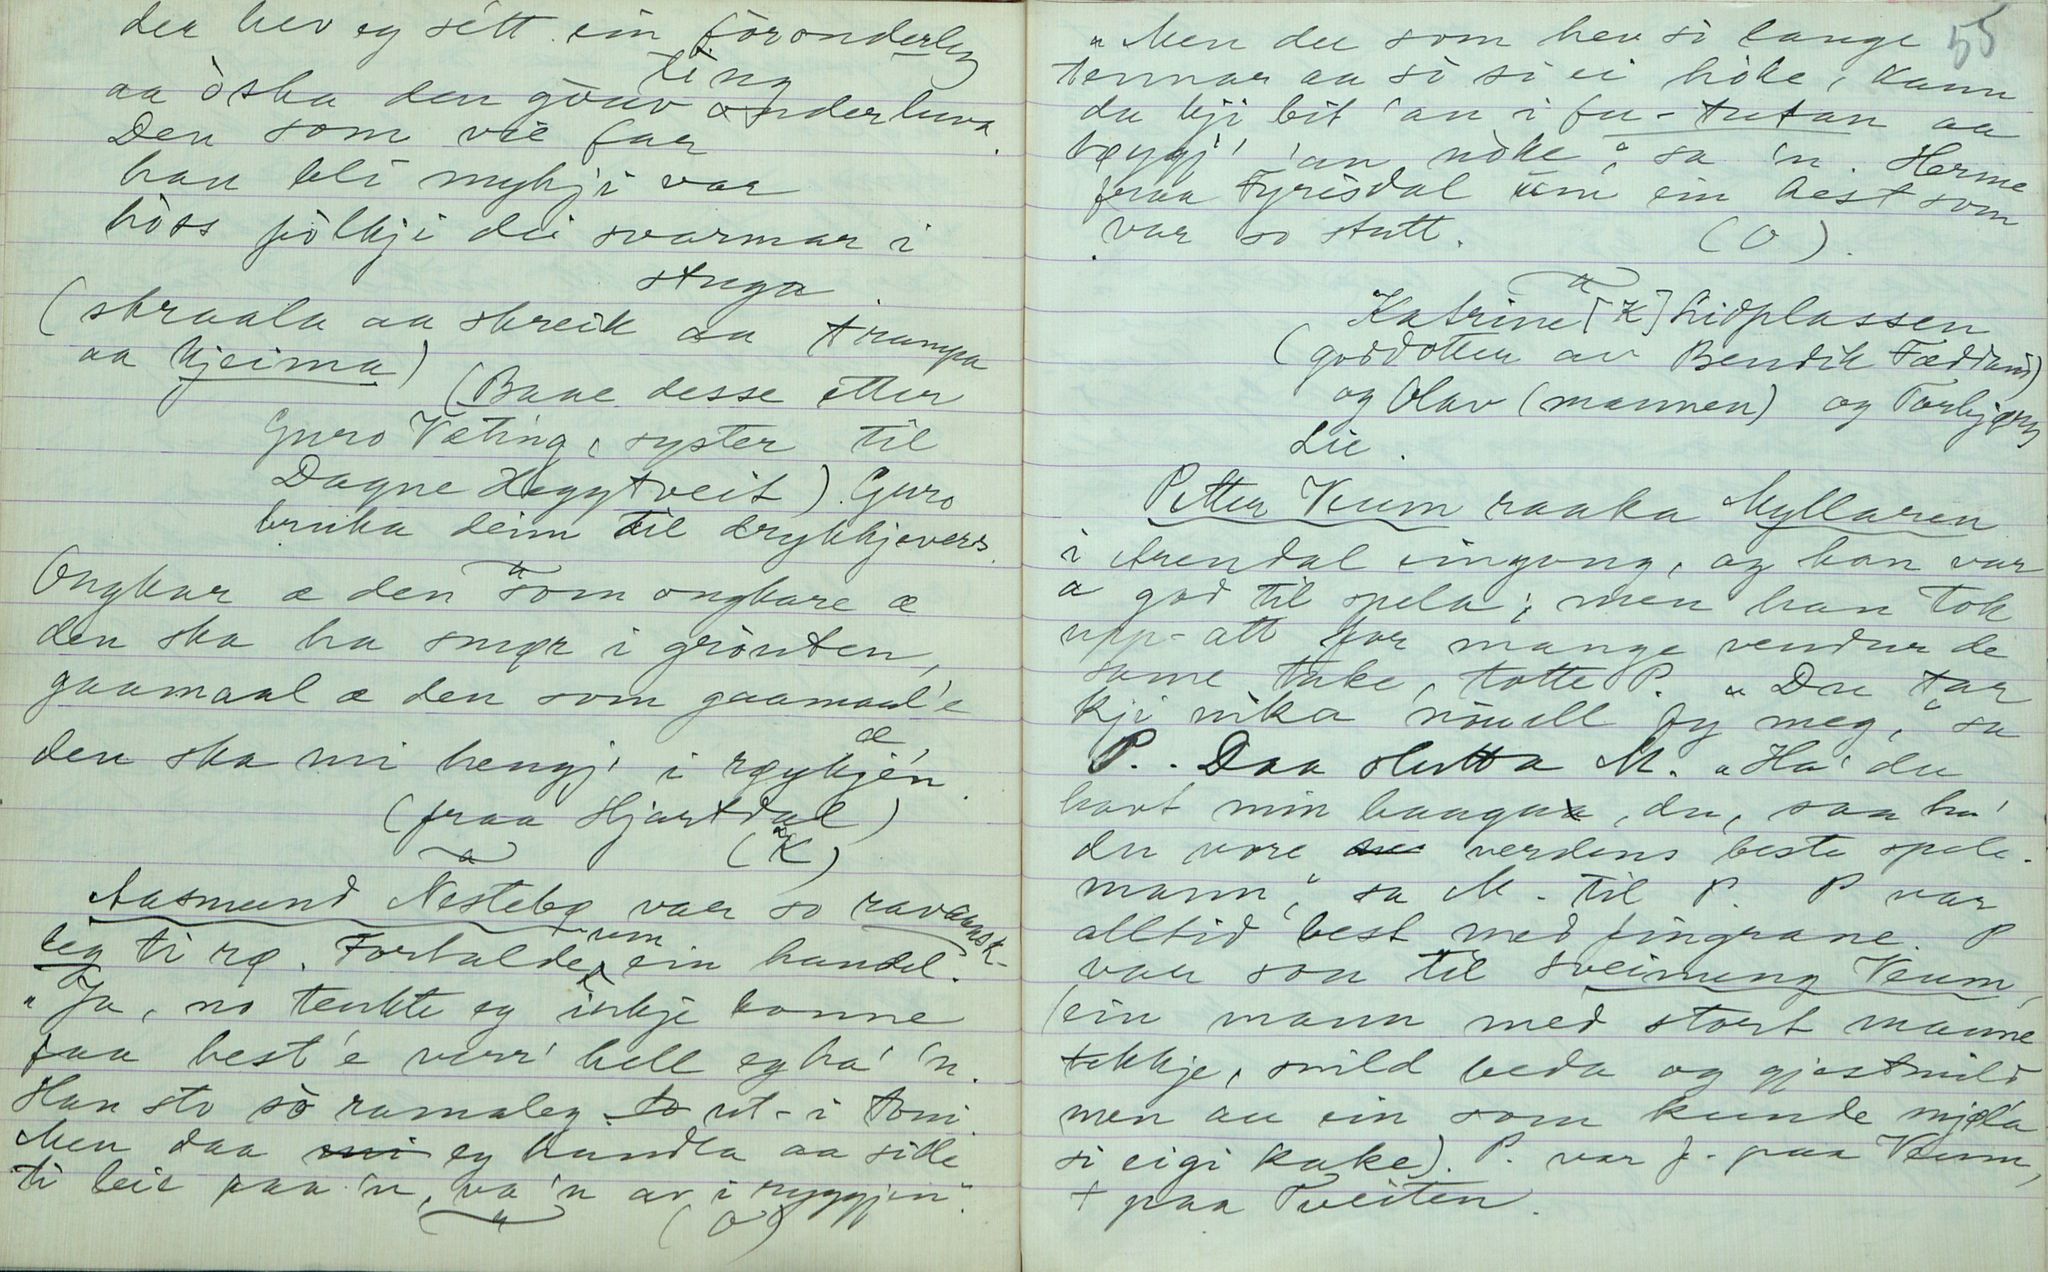 der hev eg sétt ein föronderleg
ting
aa òska den gòuv onderluva.
Den som vil faa
han bli mykji var
hòss fòlkji dei svarmar i
stuga
(skraala aa skreik aa trampa
aa kjeima)
(Baae desse etter
Guro Væting, syster til
Dagne Heggtveit). Guro
bruka deim til drykkjevers.
Ongkar æ den som ongkare æ
den ska ha smør i grònten,
gaamaal æ den som gaamaal'e
æ
den ska mi hengj' i røykjén.
(fraa Hjartdal)
(K)
Aasmund Nestebø var so ravdansk-
leg ti rø. Fortalde um ein handel.
"Ja, no tenkte eg inkje konne
faa best'e verr' hell eg ha' 'n.
Han sto sò ramaleg to ut-i toni.
Men daa mi eg handla aa sille
ti leie paa 'n, va 'n av i ryggjen".
(O)
55
"Men du som hev sò lange
tennar aa sò si ei hòke, kann
du kji bit 'an i fu-tutan aa
tøygj' 'an nòke", sa 'n Herme
fraa Fyrisdal um ein hest som
var so stutt. (O).
Katrine [K] Lidplassen
(goddotter av Bendik Fædland)
og Olav (mannen) og Torbjørn
Lie.
Petter Veum raaka Myllaren
i Arendal eingong, og han var
a god til spela; men han tok
upp-att for mange vendur de
same take, totte P. "Du tar
kji nika nòuell fy meg," sa
P. - Daa slutta M. "Ha' du
havt min baaga, du, saa ha'
du vore verdens beste spele-
mann," sa M. til P. P var
alltid best med fingrane. P
var son til Sveinung Veum,
(ein mann med stort manne
tekkje, snild beda og gjestmild
men au ein som kunde mjøla
si eigi kake). P. var f. paa Veum,
+ paa Tveiten.